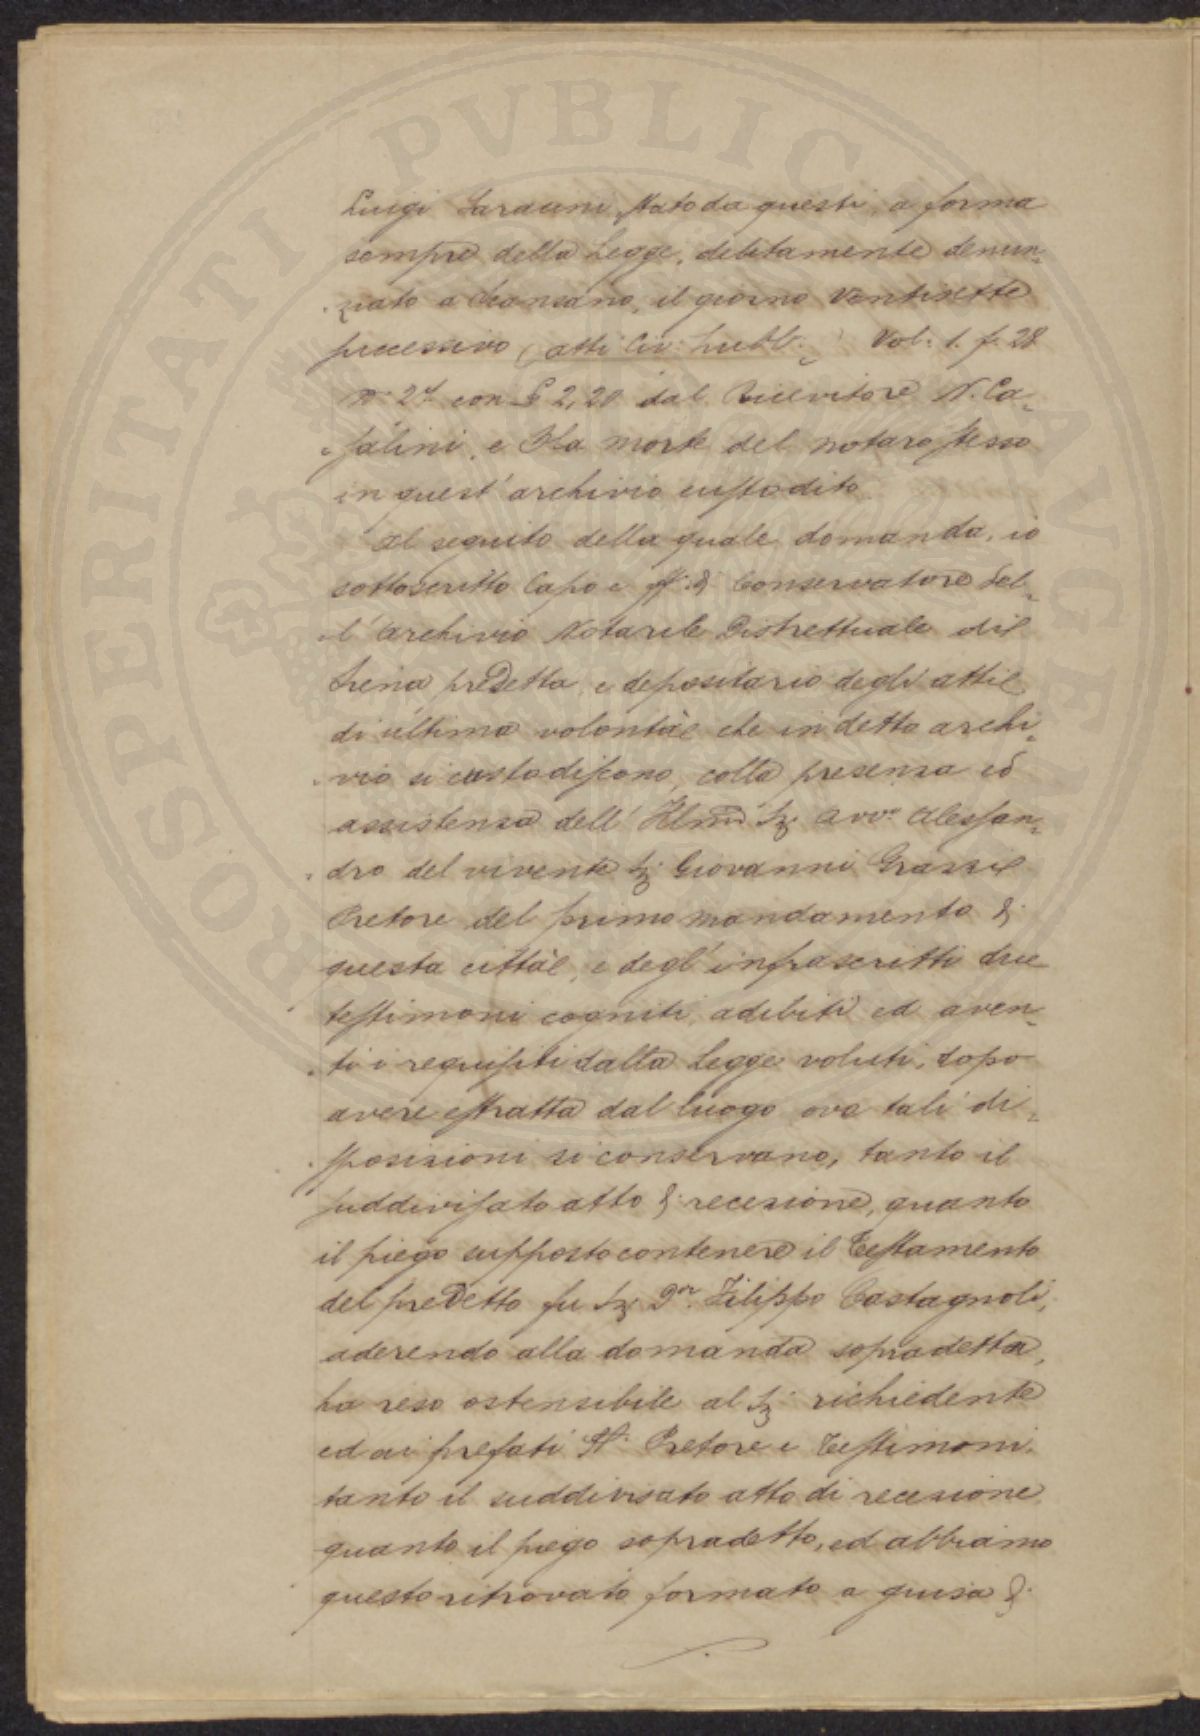 Luigi Saracini, stato da questi, a forma
sempre della Legge, debitamente denun-
ziato a Scansano, il giorno Ventisette
successivo (atti Civ: Pubb:) Vol: 1. f. 28
n: 27 con £ 2,20 dal Ricevitore N. Ca-
salini, e P la morte del notaro stesso
in quest'archivio custodito.
Al seguito della quale domanda, io
sottoscritto Capo e Conservatore del-
l'archivio Notarile Distrettuale di
Siena predetta, e depositario degli atti
di ultima volontà che in detto archi-
vio si custodiscono, colla presenza ed
assistenza dell'Illmo Sig. Avv. Alessan-
dro del vivente Sig. Giovanni Grassi
Pretore del primo mandamento di
questa città, e degl'infrascritti due
testimoni cogniti, adibiti ed aven-
ti i requisiti dalla Legge voluti, dopo
avere estratta dal luogo ove tali di-
sposizioni si conservano, tanto il
suddivisato atto di recezione, quanto
il piego supposto contenere il Testamento
del predetto fu Sig. Dor. Filippo Castagnoli,
aderendo alla domanda sopradetta,
ha reso ostensibile al Sig. richiedente
ed ai prefati Pretore e Testimoni.
tanto il suddivisato atto di recezione
quanto il piego sopradetto, ed abbiamo
questo ritrovato formato a guisa di
PROSPERITATI PVBLICAE AVGENDAE